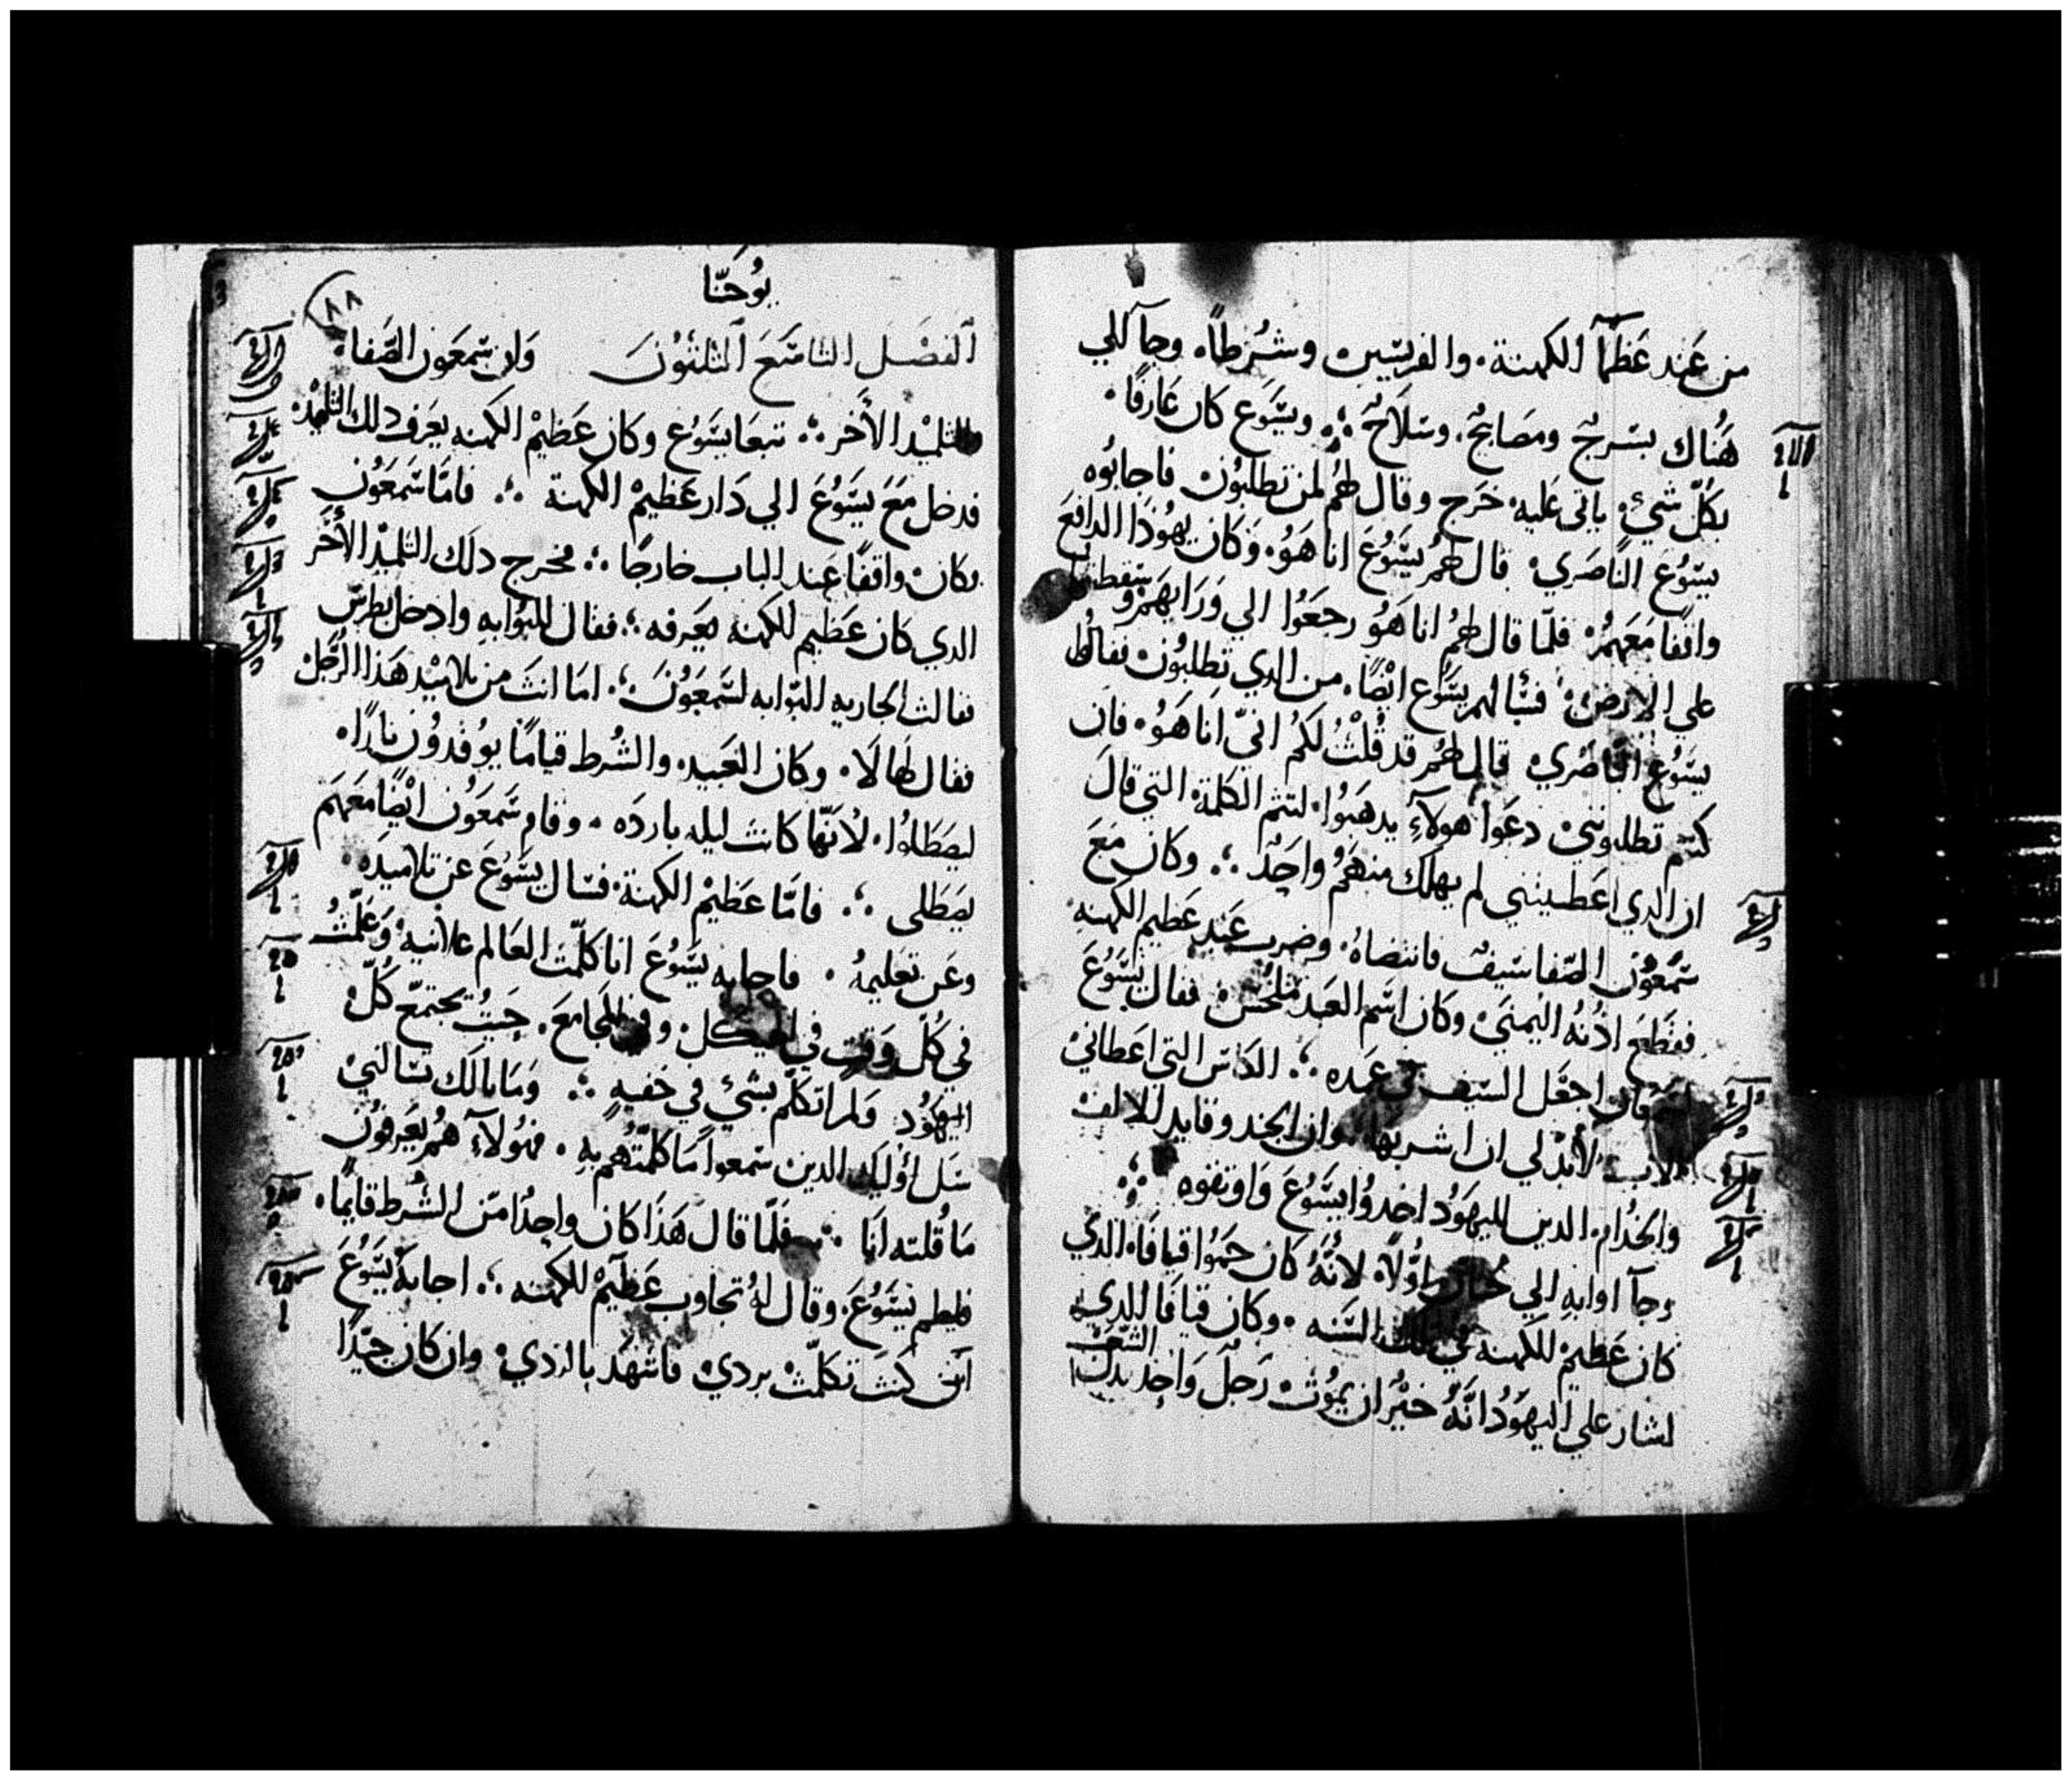 من عند عظمآ الكهنة. والفريسين وشرطاً. وجآ الي
هُناك بسرج ومصابيح. وسلاح ؞ ويسوع كان عارفًا.
بكل شيء ياتي عليه خرج وقال لهم لمن تطلبون فاجابوه
يسوع الناصري قال لهم يسوع انا هو. وكان يهوذا الدافع
واقفا معهم فلما قال لهم انا هو رجعوا الي ورايهم وسقطوا
على الارض فسالهم يسوع ايضًا. من الدي تطلبون فقالوا
يسوع الناصري قال لهم قد قلت لكم اني انا هو. فان
كنتم تطلبوني دعوا هولآء يدهبوا. لتتم الكلمة التي قال
ان الدي اعطيتني لم يهلك منهم واحد ؞ وكان مع
سمعون الصفا سيف فانتضاه. وضرب عبد عظيم الكهنه
فقطع ادنه اليمني وكان اسم العبد ملخس فقال يسوع
اجعل السيف في غمده ؞ الكاس التي اعطاني
الاب لابد لي ان اشربها. وان الجند وقايد الالف
والخدام. الدين لليهود اخدوا يسوع واوتقوه ؞
وجآ اوابه الي حنان اولاً. لانه كان حموا قيافا. الذي
كان عظيم الكهنه في تلك السنه. وكان قيافا الدي
الشعب
اشار علي اليهود انه خير ان يموت رجل واحد بدل
يوحنا
٨٨
الفصل التاسع التلتون وان سمعون الصفا.
والتلميد الاخر ؞ تبعا يسوع وكان عظيم الكهنه يعرف دلك التلميد
فدخل مع يسوع الي دار عظيم الكهنة ؞ فاما سمعون
فكان واقفًا عند الباب خارجًا ؞ فخرج دلك التلميد الاخر
الدي كان عظيم الكهنه يعرفه ؞ فقال للبوابه وادخل بطرس
فقالت الجاريه البوابه لسمعون ؞ اما انت من تلاميد هذا الرجل
فقال لها لا. وكان العبيد. والشرط قيامًا يوقدون نارًا.
ليصطلوا. لانها كانت ليله بارده. وقام سمعون ايضًا معهم
يصطلي ؞ فاما عظيم الكهنة. فسال يسوع عن تلاميده.
وعن تعليمه. فاجابه يسوع انا كلمت العالم علانيه وعلمت
في كل وقت في الهيكل. وفي المجامع. حيت تجتمع كل
اليهود ولم اتكلم بشيء في خفيه ؞ وما بالك تسالني
سل اوليك الدين سمعوا ما كلمتهم به. فهولآء هم يعرفون
ما قلته انا ؞ فلما قال هذا كان واحدًا من الشرط قايمًا.
فلطم يسوع. وقال له تجاوب عظيم الكهنه ؞ اجابه يسوع
ان كنت تكلمت بردي فاشهد بالردي. وان كان جيدًا